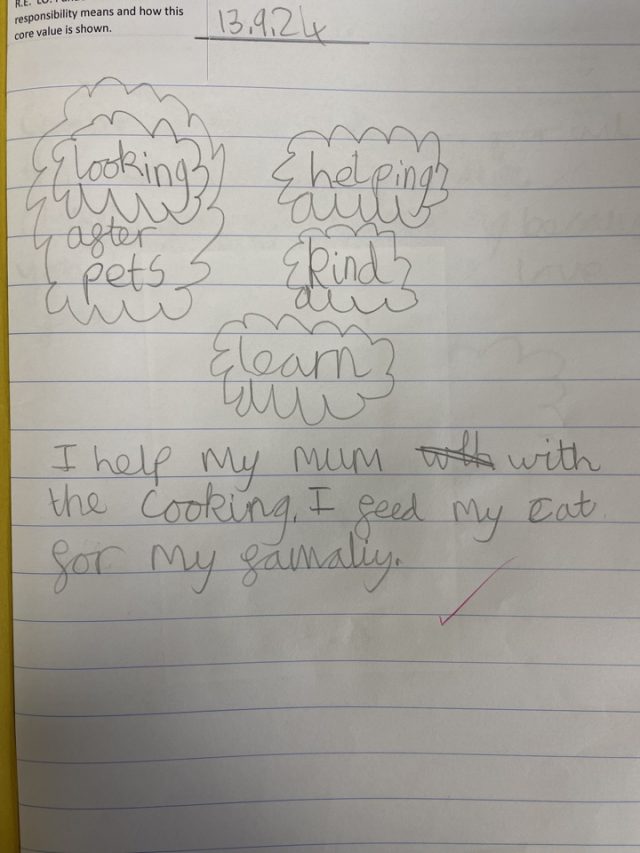 responsibility means and how this
core value is shown.
13.9.24
looking
after
pets
helping
kind
learn
I help my mum with
the cooking. I feed my cat
for my famaliy.